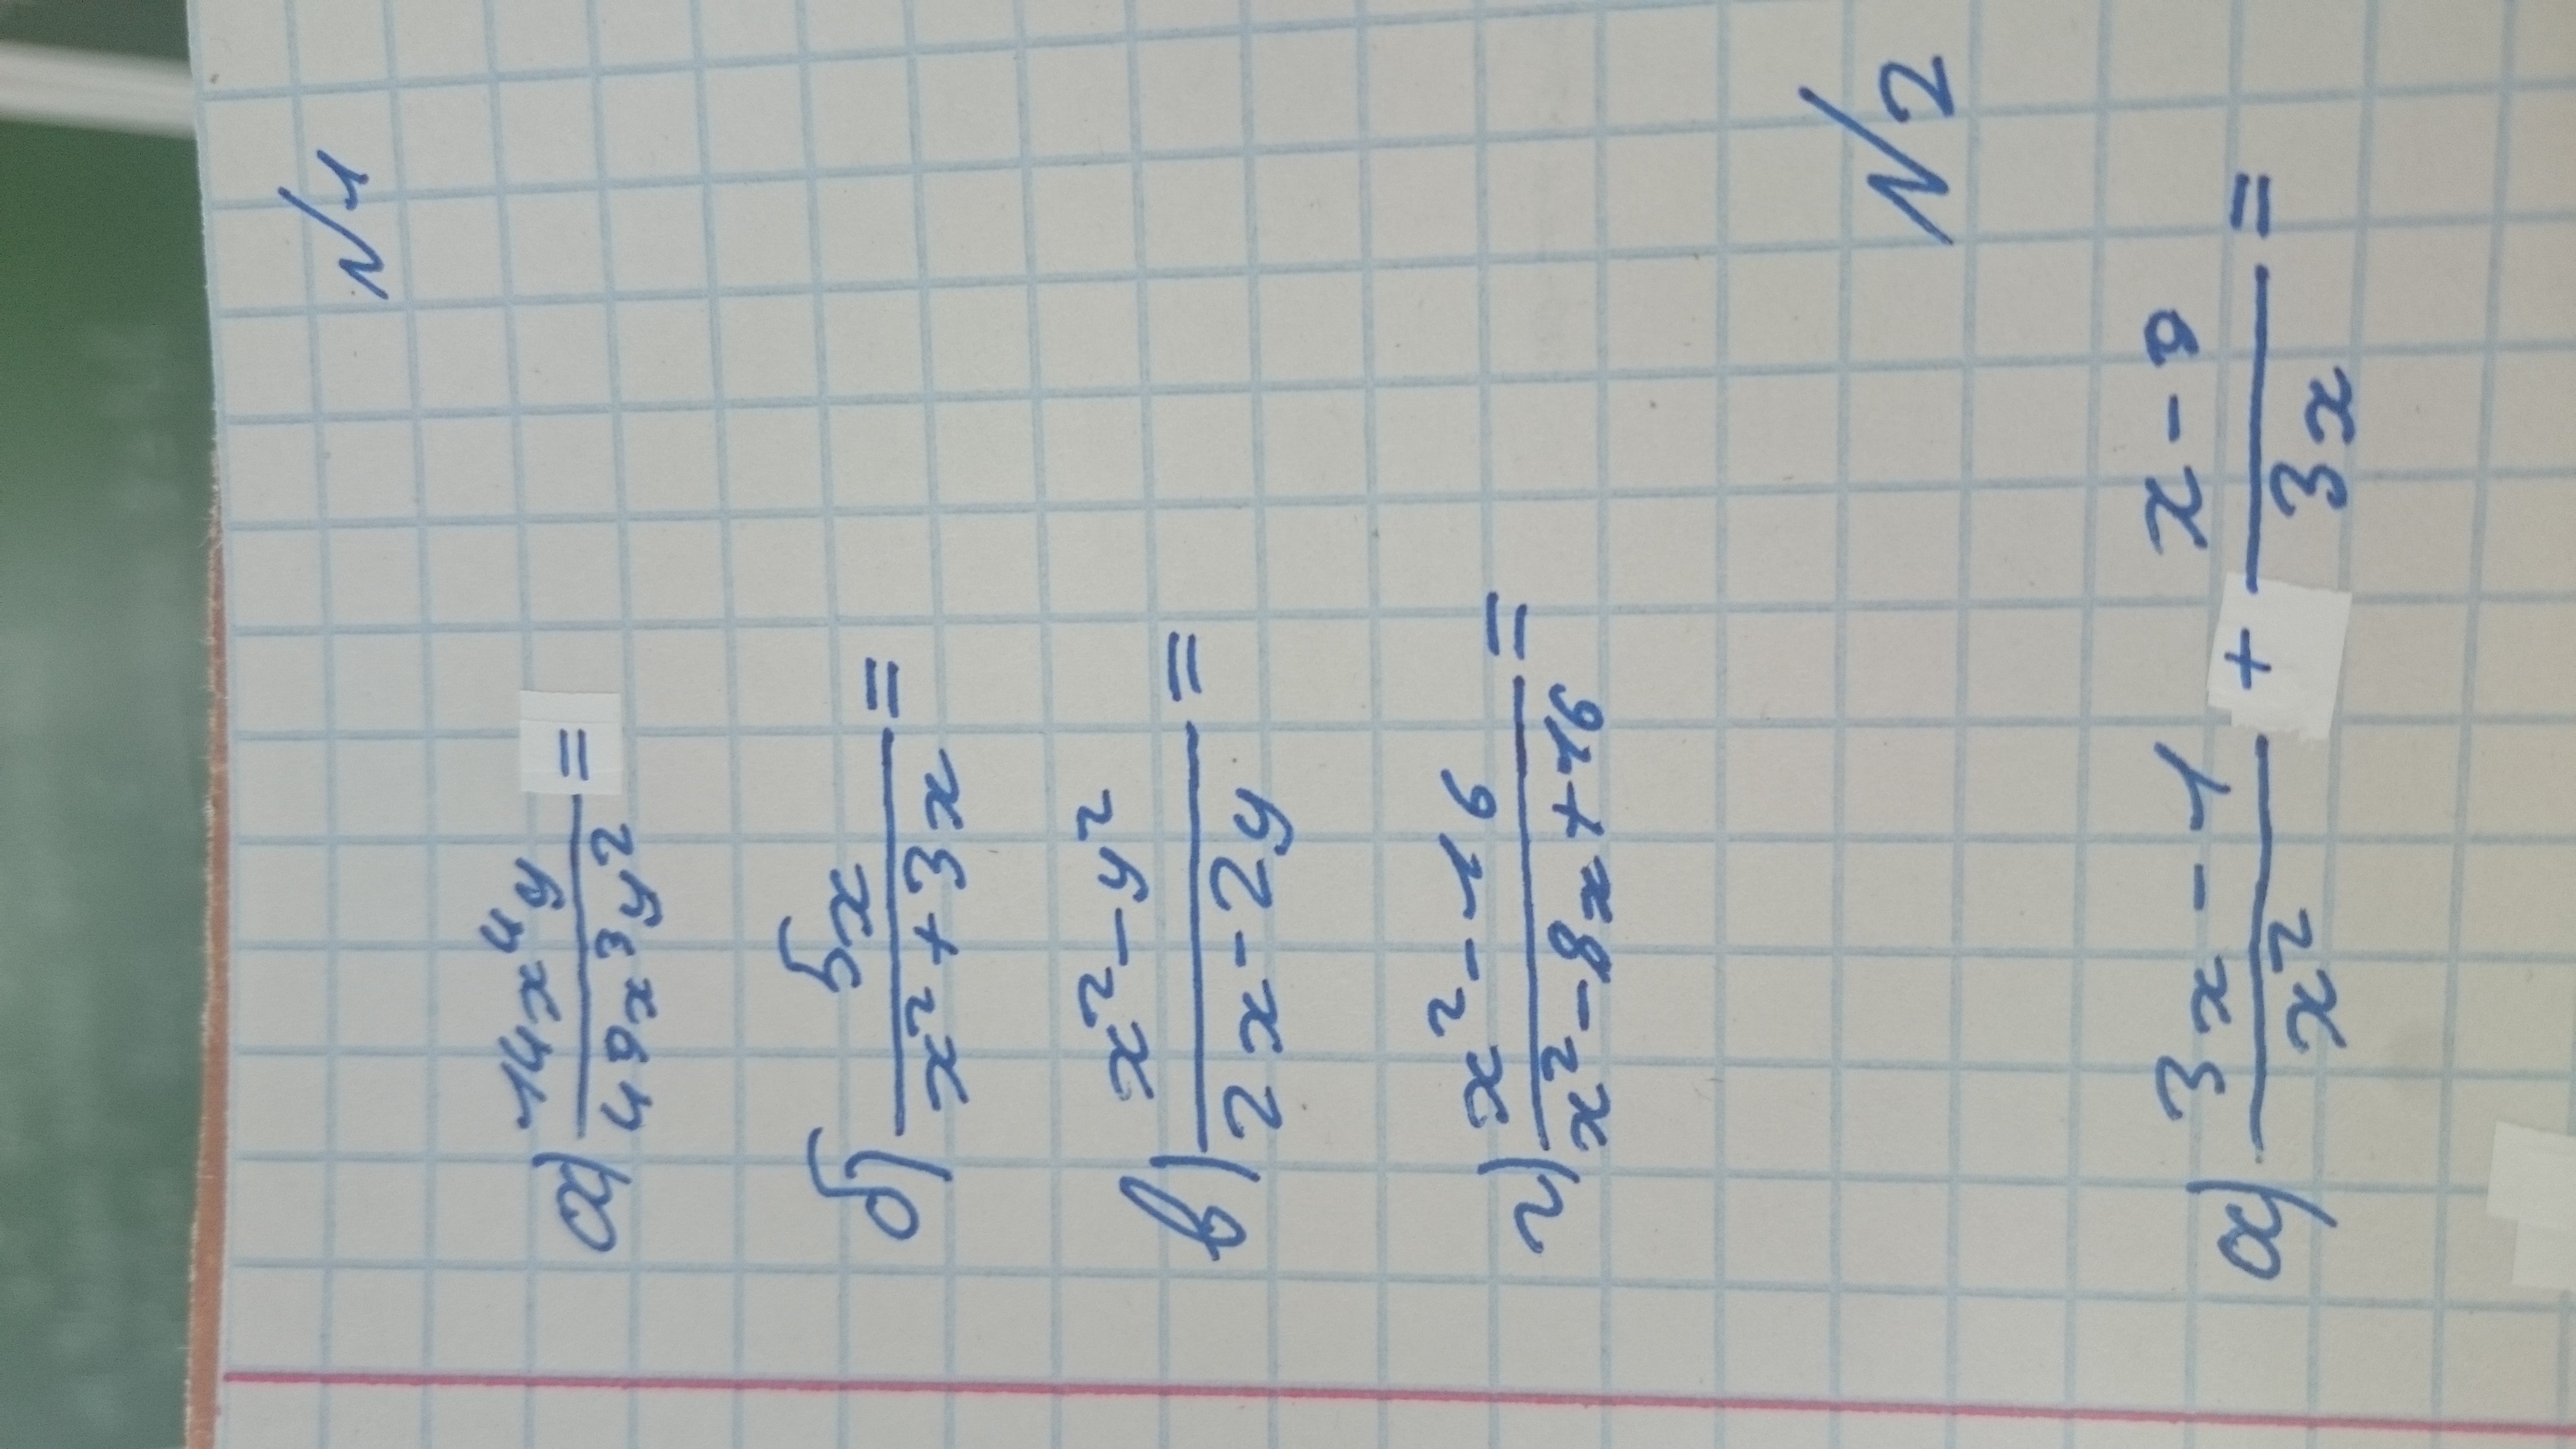 N/1
а) 14x⁴y / 49x³y² =
б) 5x / x² + 3x =
в) x² - y² / 2x - 2y =
г) x² - 16 / x² - 8x + 16 =
N/2
а) 3x - 1 / x² + x - 9 / 3x =